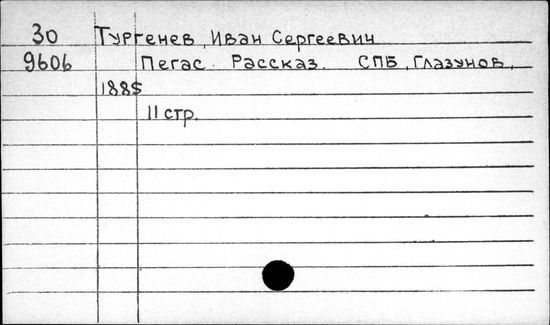 30 Тургенев, Иван Сергеевич
9606 Пегас. Рассказ. СПБ, Глазунов,
1885
11 стр.